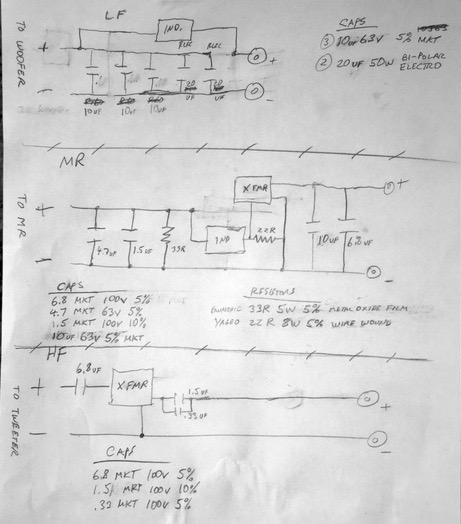 LF
IND.
CAPS
③ 10UF 63V 5% MKT
② 20UF 50W BI-POLAR
ELECTRO
TO WOOFER
+
ELEC
ELEC
+
-
-
20
UF
20
UF
10UF
10UF
10UF
MR
XFMR
+
TO MR
+
IND
22R
4.7UF
1.5UF
33R
10UF
6.8UF
-
-
CAPS
6.8 MKT 100V 5%
4.7 MKT 63V 5%
1.5 MKT 100V 10%
10UF 63V 5% MKT
RESISTORS
33R 5W 5% METAL OXIDE FILM
YAGEO 22R 8W 5% WIRE WOUND
HF
6.8UF
+
XFMR
1.5UF
.33UF
+
TO TWEETER
-
-
CAPS
6.8 MKT 100V 5%
1.5 MKT 100V 10%
.33 MKT 100V 5%